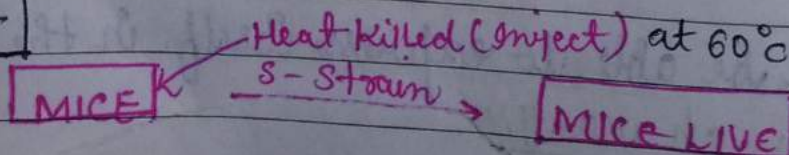 Heat killed (Inject) at 60°C
MICE S-Strain MICE LIVE